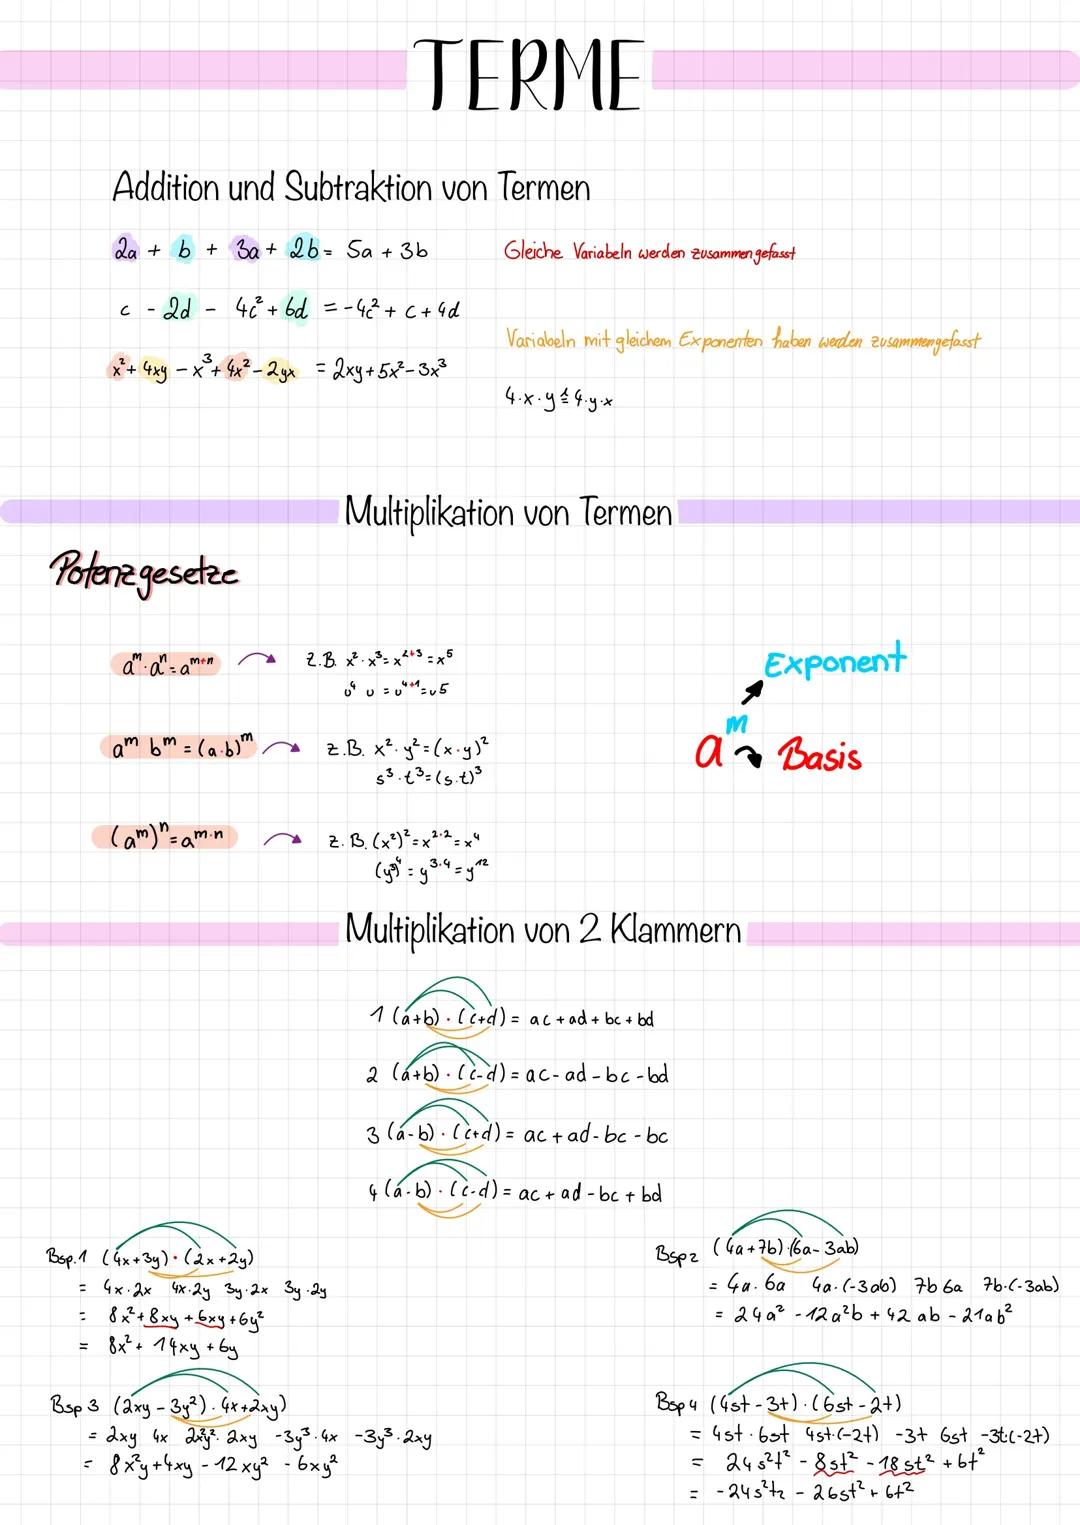 TERME
Addition und Subtraktion von Termen
2a + b + 3a + 2b = 5a + 3b
Gleiche Variabeln werden zusammengefasst
c - 2d - 4c² + 6d = -4c² + c + 4d
Variabeln mit gleichem Exponenten haben werden zusammengefasst
x² + 4xy - x³ + 4x² - 2yx = 2xy + 5x² - 3x³
4·x·y ≙ 4·y·x
Multiplikation von Termen
Potenzgesetze
aᵐ·aⁿ = aᵐ⁺ⁿ
z.B. x²·x³ = x²⁺³ = x⁵
u⁴ u = u⁴⁺¹ = u5
Exponent
aᵐ
Basis
aᵐ bᵐ = (a·b)ᵐ
z.B. x²·y² = (x·y)²
s³·t³ = (s·t)³
(aᵐ)ⁿ = aᵐ·ⁿ
z.B. (x²)² = x²·² = x⁴
(y³)⁴ = y³·⁴ = y¹²
Multiplikation von 2 Klammern
1 (a+b)·(c+d) = ac + ad + bc + bd
2 (a+b)·(c-d) = ac - ad - bc - bd
3 (a-b)·(c+d) = ac + ad - bc - bc
4 (a-b)·(c-d) = ac + ad - bc + bd
Bsp.1 (4x+3y)·(2x+2y)
= 4x·2x 4x·2y 3y·2x 3y·2y
= 8x² + 8xy + 6xy + 6y²
= 8x² + 14xy + 6y
Bsp 2 (4a+7b)·(6a-3ab)
= 4a·6a 4a·(-3ab) 7b 6a 7b·(-3ab)
= 24a² - 12a²b + 42ab - 21ab²
Bsp 3 (2xy - 3y²)·4x+2xy)
= 2xy 4x 2xy²·2xy -3y³·4x -3y³·2xy
= 8x²y + 4xy - 12xy² - 6xy²
Bsp 4 (4st - 3t)·(6st - 2t)
= 4st·6st 4st·(-2t) -3t 6st -3t(-2t)
= 24s²t² - 8st² - 18st² + 6t²
= -24s²t² - 26st² + 6t²